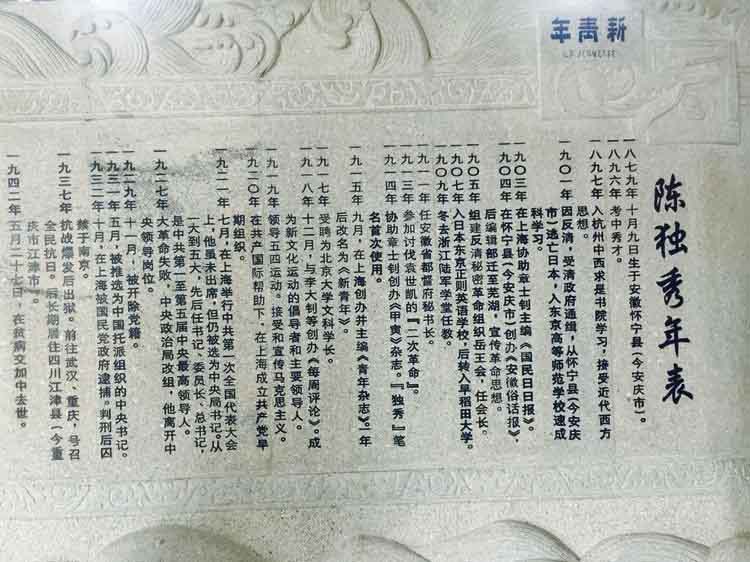 新青年
LA JEUNESSE
陈独秀年表
一八七九年 十月九日生于安徽怀宁县（今安庆市）。
一八九六年 考中秀才。
一八九七年 入杭州中西求是书院学习，接受近代西方
思想。
一九〇一年 因反清，受清政府通缉，从怀宁县（今安庆
市）逃亡日本，入东京高等师范学校速成
科学习。
一九〇三年 在上海协助章士钊主编《国民日日报》。
一九〇四年 在怀宁县（今安庆市）创办《安徽俗话报》，
后编辑部迁至芜湖，宣传革命思想。
一九〇五年 组建反清秘密革命组织岳王会，任会长。
一九〇七年 入日本东京正则英语学校，后转入早稻田大学。
一九〇九年 冬去浙江陆军学堂任教。
一九一一年 任安徽省都督府秘书长。
一九一三年 参加讨伐袁世凯的『二次革命』。
一九一四年 协助章士钊创办《甲寅》杂志。『独秀』笔
名首次使用。
一九一五年 九月，在上海创办并主编《青年杂志》。一年
后改名为《新青年》。
一九一七年 受聘为北京大学文科学长。
一九一八年 十二月，与李大钊等创办《每周评论》。成
为新文化运动的倡导者和主要领导人。
一九一九年 领导五四运动。接受和宣传马克思主义。
一九二〇年 在共产国际帮助下，在上海成立共产党早
期组织。
一九二一年 七月，在上海举行中共第一次全国代表大会
上，他虽未出席，但仍被选为中央局书记。从
一大到五大，先后任书记、委员长、总书记，
是中共第一至第五届中央最高领导人。
一九二七年 大革命失败，中央政治局改组，他离开中
央领导岗位。
一九二九年 十一月，被开除党籍。
一九三一年 五月，被推选为中国托派组织的中央书记。
一九三二年 十月，在上海被国民党政府逮捕。判刑后囚
禁于南京。
一九三七年 抗战爆发后出狱。前往武汉、重庆，号召
全民抗日。后长期居住四川江津县（今重
庆市江津市）。
一九四二年 五月二十七日，在贫病交加中去世。